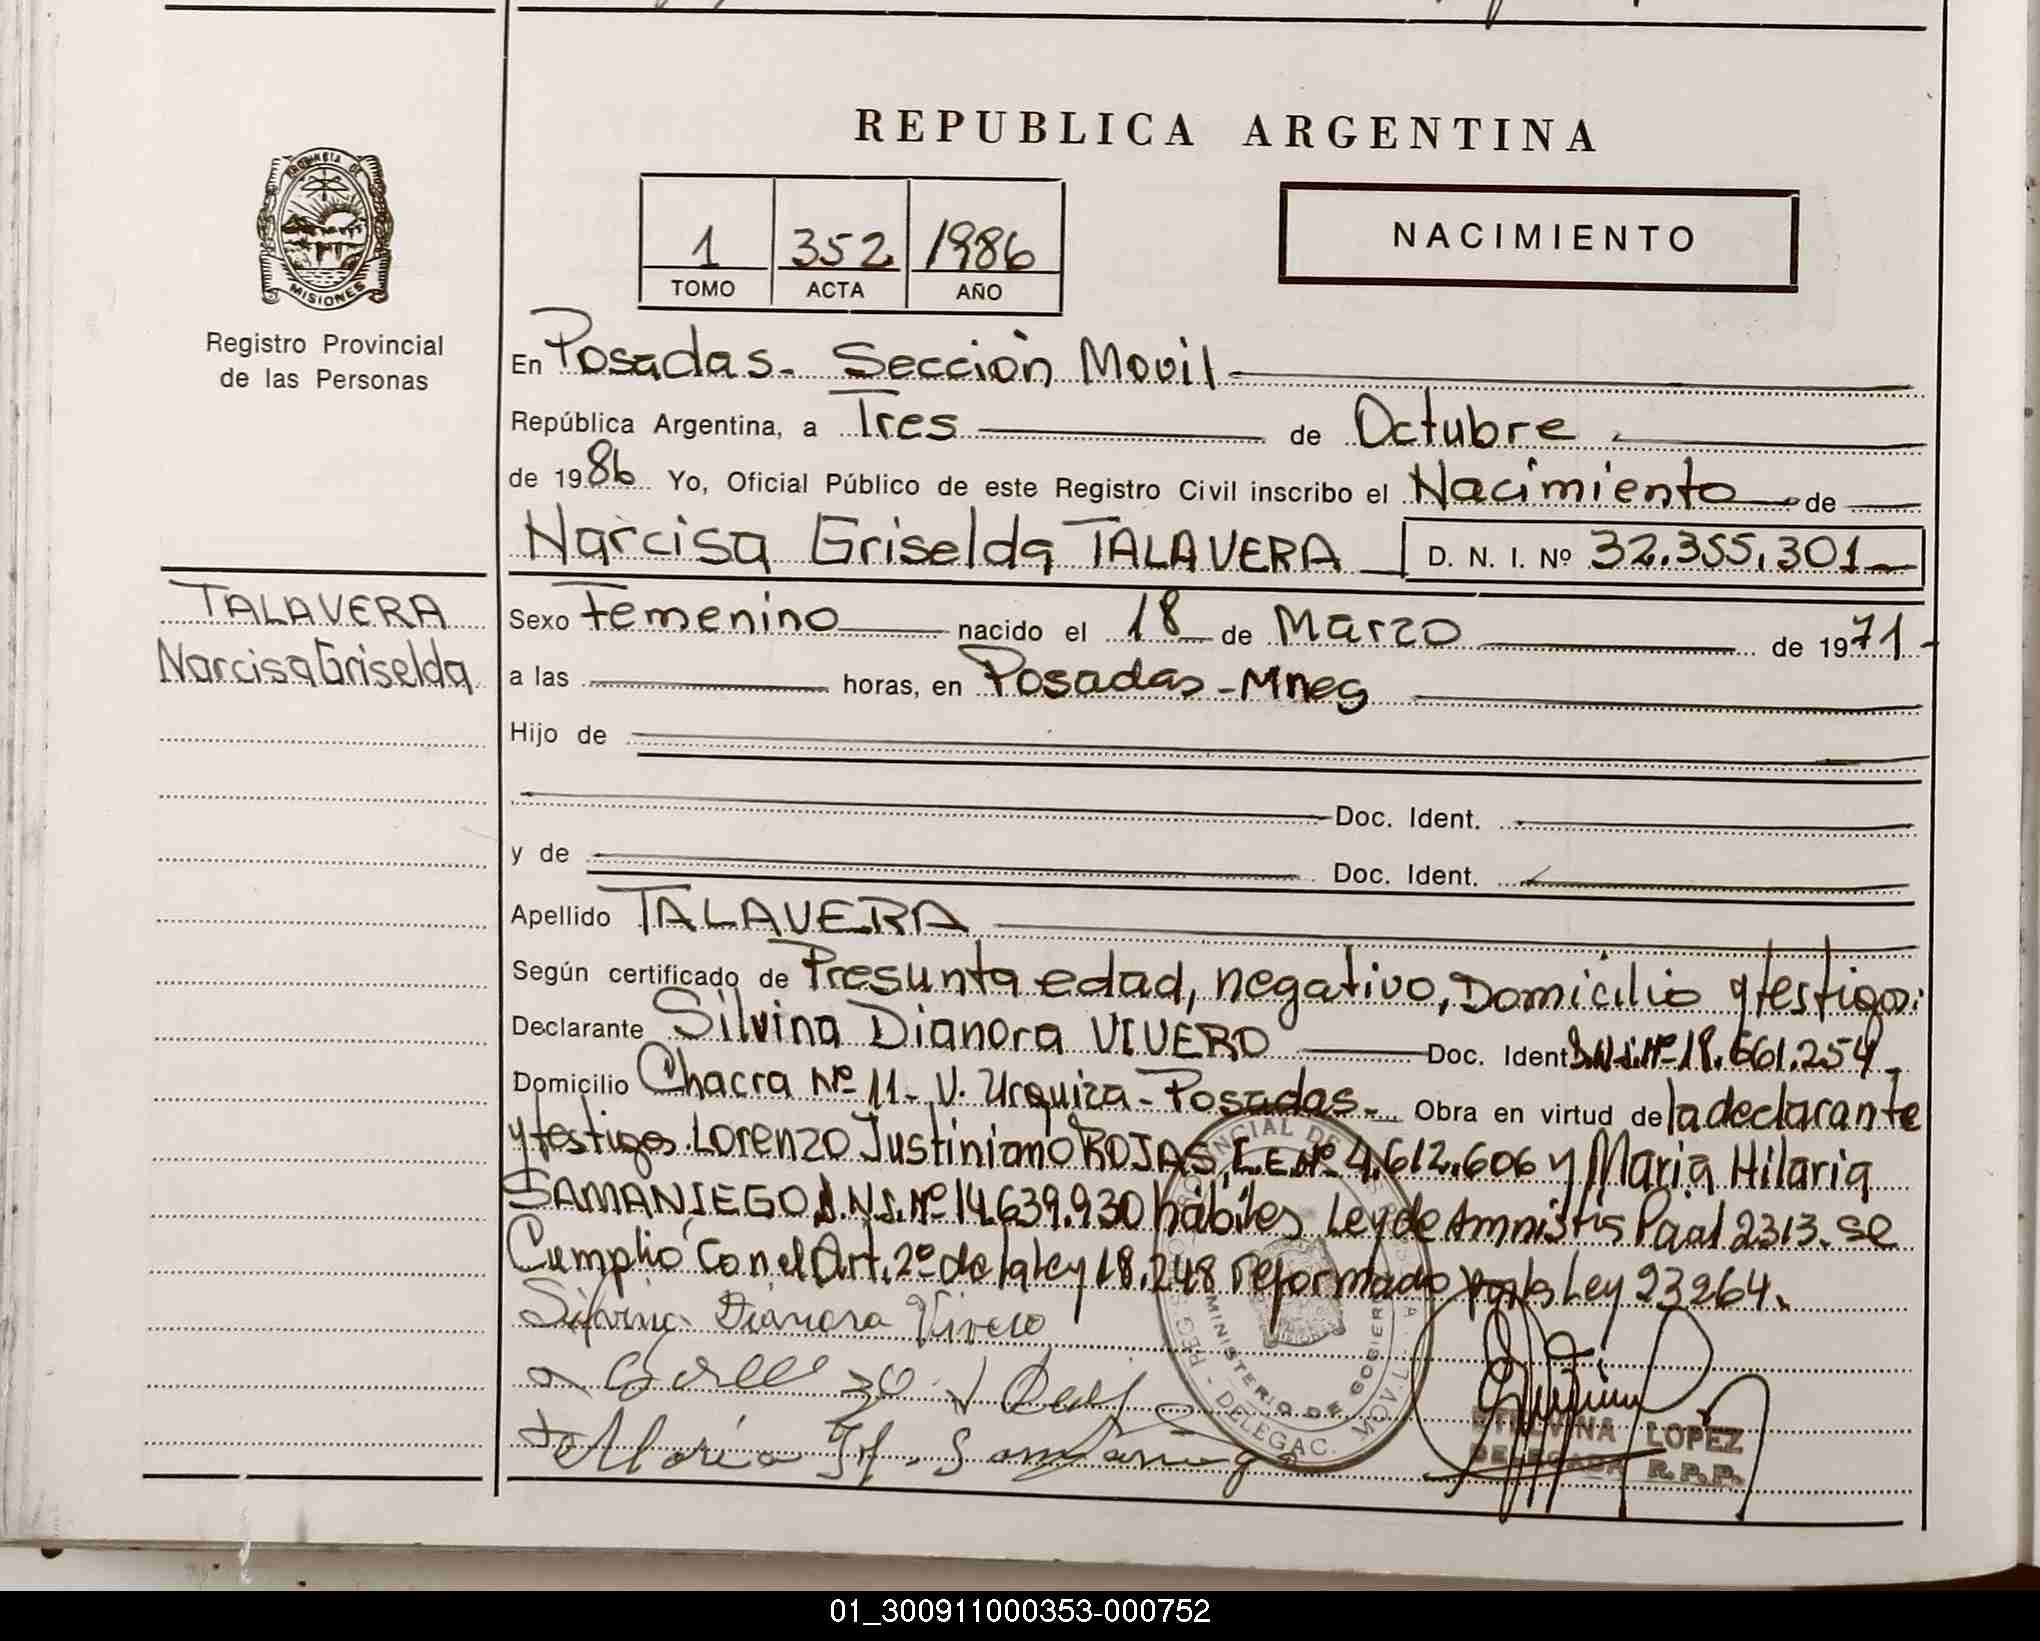 REPUBLICA ARGENTINA
PROVINCIA DE
MISIONES
Registro Provincial
de las Personas
1 352 1986
TOMO ACTA AÑO
NACIMIENTO
En Posadas- Sección Movil
República Argentina, a Tres de Octubre
de 1986 Yo, Oficial Público de este Registro Civil inscribo el Nacimiento de
Narcisa Griselda TALAVERA D. N. I. Nº 32.355.301
TALAVERA
Narcisa Griselda
Sexo Femenino nacido el 18 de Marzo de 1971
a las horas, en Posadas - Mnes
Hijo de
Doc. Ident.
y de Doc. Ident.
Apellido TALAVERA
Según certificado de Presunta edad, negativo, Domicilio y testigos:
Declarante Silvina Dianora VIVERO Doc. Ident D.N.I.Nº 18.661.254
Domicilio Chacra Nº 11- V. Urquiza - Posadas. Obra en virtud de la declarante
y testigos Lorenzo Justiniano ROJAS, L.E.Nº 4.612.606 y Maria Hilaria
SAMANIEGO D.N.I.Nº 14.639.930 hábiles Ley de Amnistis Pcial 2313. se
Cumplió con el Art. 2º de la ley 18.248 reformado por la Ley 23264.
Silvina Dianora Vivero
Maria H. Samaniego
MINISTERIO DE GOBIER
DELEGAC. MOVIL
ETELVINA LOPEZ
DELEGADA R.P.P.
01_300911000353-000752